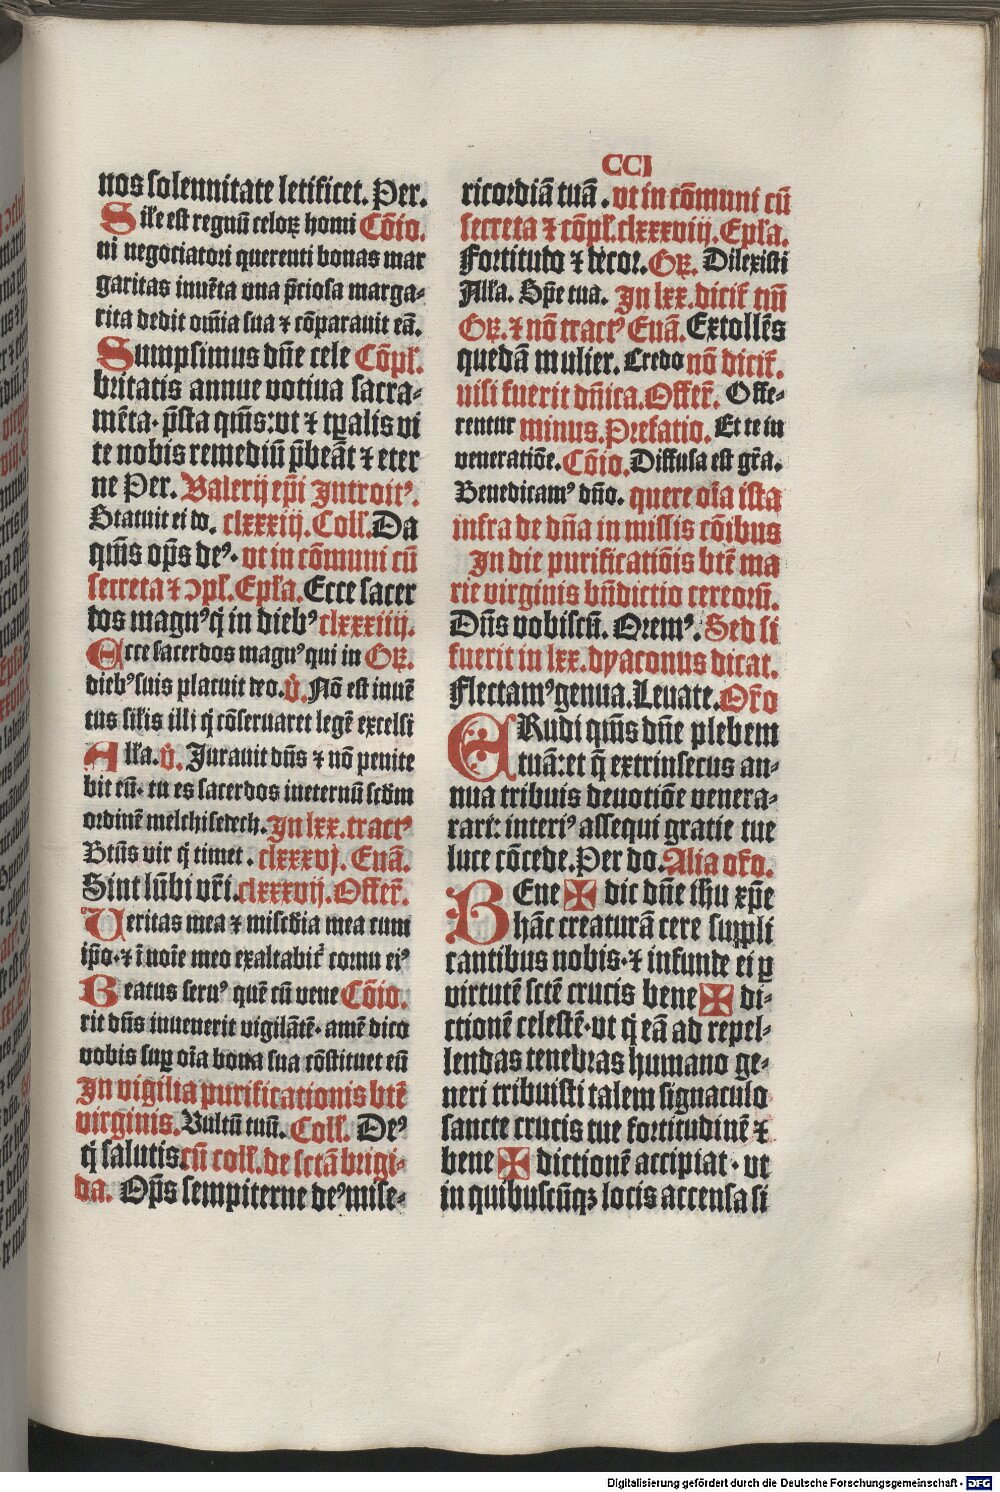 CCI
nos solennitate letificet. Per.
Sile est regnū celoꝝ homi Cōio.
ni negociatori querenti bonas mar
garitas inuēta vna p̄ciosa marga⸗
rita dedit om̄ia sua ⁊ cōparauit eā.
Sumpsimus dn̄e cele Cōpl.
britatis annue votiua sacra⸗
mēta· p̄sta qm̄s: vt ⁊ tꝑalis vi
te nobis remediū p̄beāt ⁊ eter
ne Per. Valerij ep̄i Introitꝰ.
Statuit ei do. clxxxiij. Coll. Da
qm̄s op̄s deꝰ· vt in cōmuni cū
secreta ⁊ ɔpl. Epl'a. Ecce sacer
dos magnꝰ q̇ in diebꝰ clxxxiiij.
Ecce sacerdos magnꝰ qui in Gꝝ.
diebꝰ suis placuit deo. v̇. Nō est inuē
tus silis illi q̇ cōseruaret legē excelsi
All'a. v̇. Jurauit dn̄s ⁊ nō penite
bit eū· tu es sacerdos ineternū scd̄m
ordinē melchisedech. In lxx. tractꝰ
Bt̄us vir q̇ timet. clxxxvj. Euā.
Sint lūbi vr̄i. clxxxvij. Offer̄.
Veritas mea ⁊ mis̄cdia mea cum
ip̄o·⁊ ī noīe meo exaltabit̄ cornu eiꝰ
Beatus seruꝰ quē cū vene Cōio.
rit dn̄s inuenerit vigilātē· amē dico
vobis suꝑ oīa bona sua cōstituet eū
In vigilia purificationis btē
virginis. Vultū tuū. Coll. Deꝰ
q̇ salutis. cū coll. de sctā brigi⸗
da. Op̄s sempiterne deꝰ mise⸗
ricordiā tuā. vt in cōmuni cū
secreta ⁊ cōpl. clxxxviij. Epl'a.
Fortitudo ⁊ decor. Gꝝ. Dilexisti
All'a. Sp̄e tua. In lxx. dicit̄ tm̄
Gꝝ. ⁊ nō tractꝰ Euā. Extollēs
quedā mulier. Credo nō dicit̄.
nisi fuerit dn̄ica. Offer̄. Offe⸗
rentur minus. Prefatio. Et te in
veneratiōe. Cōio. Diffusa est gr̄a.
Benedicamꝰ dn̄o. quere oīa ista
infra de dn̄a in missis cōibus
In die purificatiōis btē ma
rie virginis bn̄dictio cereorū.
Dn̄s vobiscū. Oremꝰ. Sed si
fuerit in lxx. dyaconus dicat.
Flectamꝰ genua. Leuate. Or̄o
ERudi qm̄s dn̄e plebem
tuā: et q̄ extrinsecus an⸗
nua tribuis deuotiōe venera⸗
rari: interiꝰ assequi gratie tue
luce cōcede. Per do. Alia or̄o.
BEne ✠ dic dn̄e ihu xp̄e
hāc creaturā cere suppli
cantibus nobis·⁊ infunde ei ꝑ
virtutē sctē crucis bene ✠ di⸗
ctionē celestē· vt q̇ eā ad repel⸗
lendas tenebras humano ge⸗
neri tribuisti talem signaculo
sancte crucis tue fortitudinē ⁊
bene ✠ dictionē accipiat· vt
in quibuscūqꝫ locis accensa si
Digitalisierung gefördert durch die Deutsche Forschungsgemeinschaft - DFG